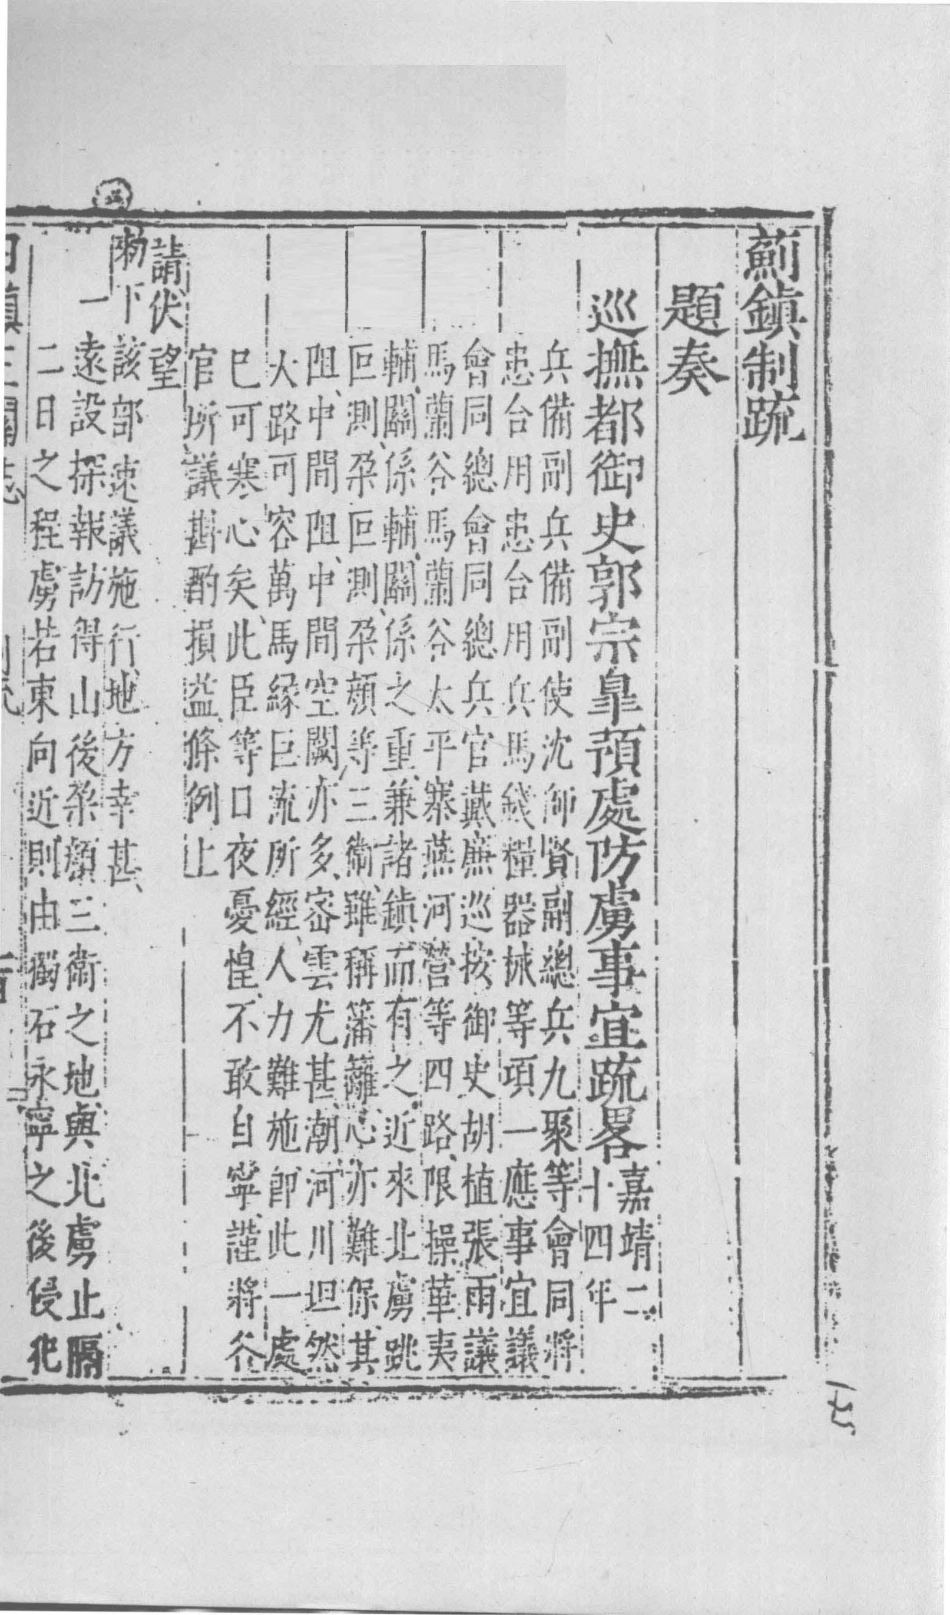 薊鎮制疏
題奏
巡撫都御史郭宗臯預處防虜事宜疏畧嘉靖二十四年
兵備副兵備副使沈師賢副總兵九聚等會同將
患台用患台用兵馬錢糧器械等項一應事宜議
會同總會同總兵官戴廉巡按御史胡植張雨議
馬蘭谷馬蘭谷太平寨燕河營等四路限操華夷
輔關係輔關係之重兼諸鎮而有之近來北虜跳
叵測朶叵測朶顏等三衛雖稱籓籬心亦難保其
阻中間阻中間空闕亦多密雲尤甚潮河川坦然
大路可容萬馬緣巨流所經人力難施即此一處
已可寒心矣此臣等日夜憂惶不敢自寧謹將各
官所議斟酌損益條例上
請伏望
勑下該部速議施行地方幸甚
一遠設探報訪得山後朶顏三衛之地與北虜止隔
二日之程虜若東向近則由獨石永寧之後侵犯